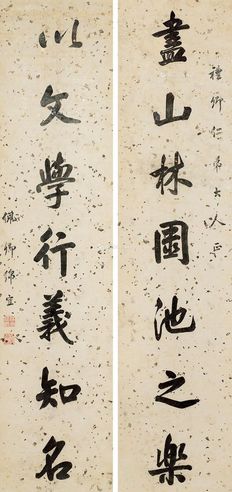 禮卿仁弟大人正
盡山林園池之樂
以文學行義知名
佩卿綿宜